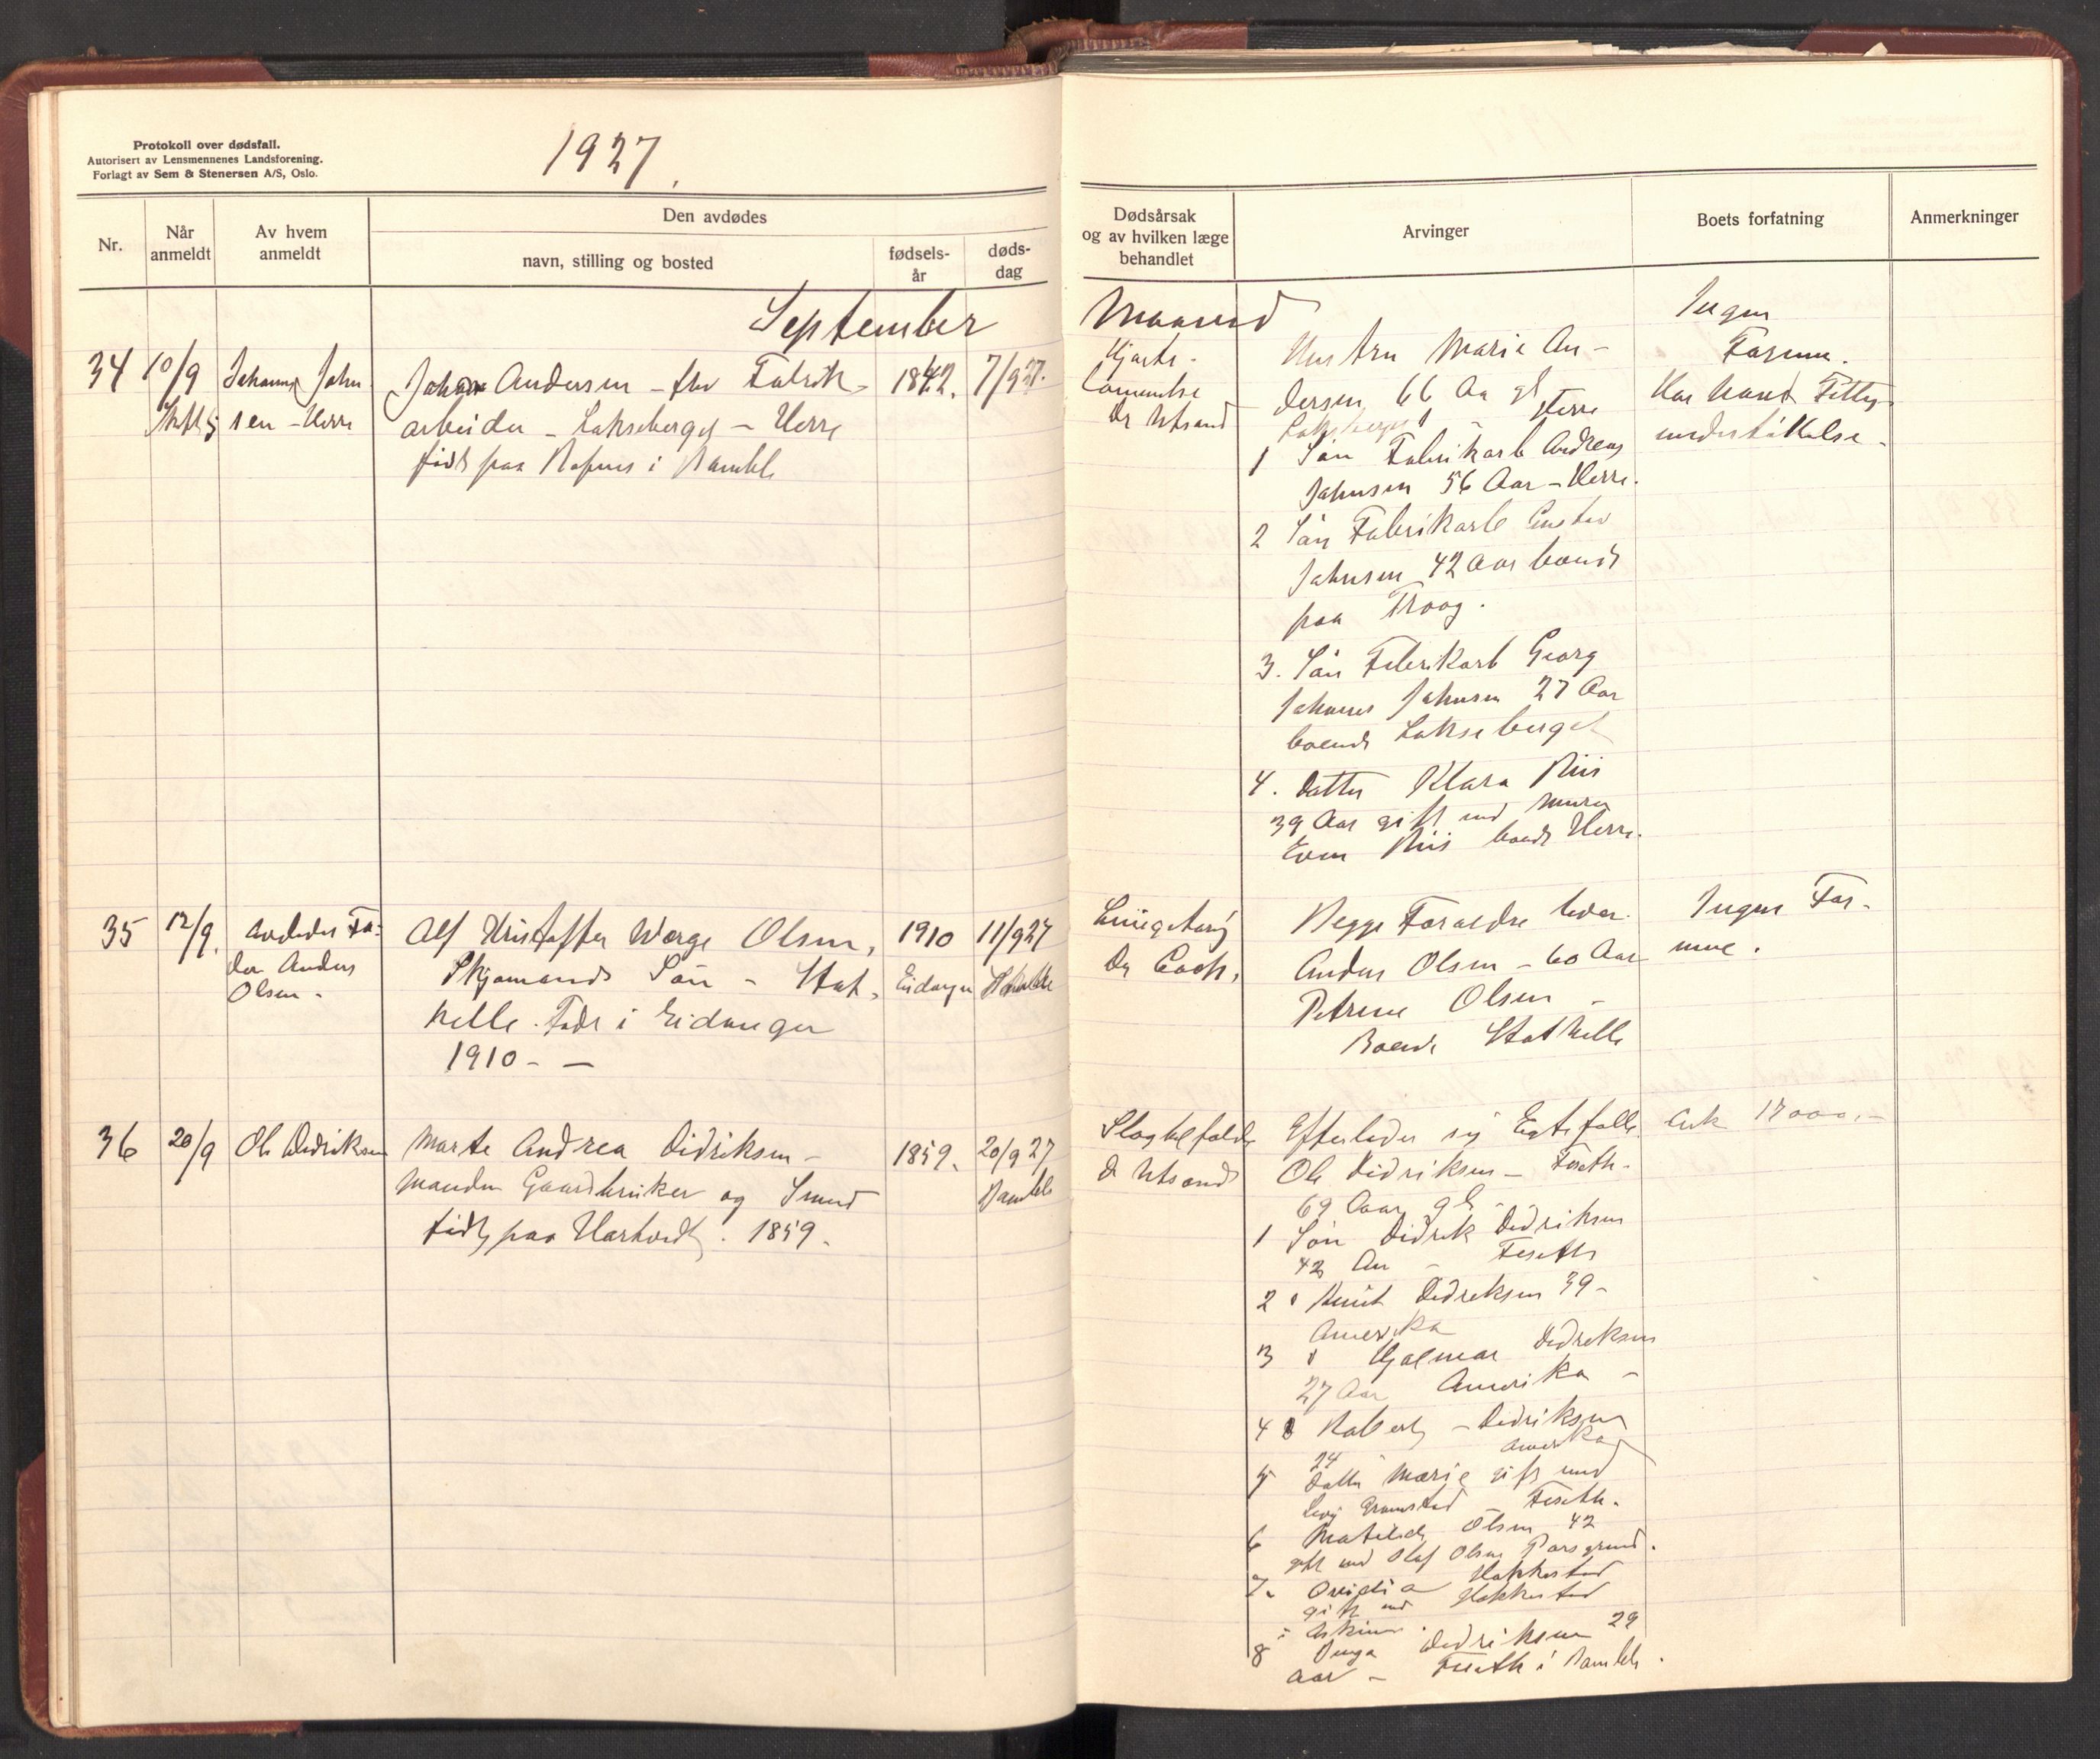 Protokoll over dødsfall.
Autorisert av Lensmennenes Landsforening.
Forlagt av Sem & Stenersen A/S, Oslo.
1927.
Nr.
Når
anmeldt
Av hvem
anmeldt
Den avdødes
navn, stilling og bosted
fødsels-
år
døds-
dag
September
34 10/9 Johannes John
sen - Herre
Johan Andersen - fhv Fabrik
arbeider - Lakseberget - Herre
født paa i Bamble
1842. 7/9 27.
35 12/9. avdødes Fa-
der Anders
Olsen -
Alf Kristoffer Worge Olsen,
Skjømands Søn - Stat
helle. Født i Eidanger
1910 - -
1910
Eidanger
11/9 27
Stathelle
36 20/9 Ole Didriksen
Marte Andrea Didriksen -
Manden Gaardbruker og Smed
født paa . 1859.
1859.
20/9 27
Bamble
Dødsårsak
og av hvilken læge
behandlet
Arvinger
Boets forfatning
Anmerkninger
Maaned
Hjerte-
lammelse
Dr Utsond
Hustru Marie An-
dersen 66 Aa gl
Lakseberget Herre
1 Søn Fabrikarb Andreas
Johnsen 56 Aar - Herre.
2 Søn Fabrikarb Gustav
Johnsen 42 Aar boende
paa
3. Søn Fabrikarb Georg
Johannes Johnsen 27 Aar
boende Lakseberget
4. Datter Klara Riis
39 Aar gift med Murer
Even Riis boende Herre.
Ingen
Formue.
Har havt Fattig
understøttelse.
Dr Coch,
Begge Foraeldre lever.
Anders Olsen - 60 Aar
Petrine Olsen -
Boende Stathelle
Ingen For-
mue.
Slagtilfælde
Dr Utsond
Efterlader sig Egtefælle
Ole Didriksen - Feseth.
69 Aar gl -
1 Søn Didrik Didriksen
42 Aar - Feseth
2 " Knut Didreksen 39 -
Amerika
3 " Hjalmar Didreksen
27 Aar Amerika -
4 " Robert - Didriksen
24 Amerika
5 Datter Marie gift med
Feseth.
6 Matilde Olsen 42
gift med Olaf Olsen Porsgrund.
7. Hakkestad
gift med Hakkestad
i Askim.
8 Inga Didriksen 29
aar - Feseth i Bamble.
Ca. 17000,-